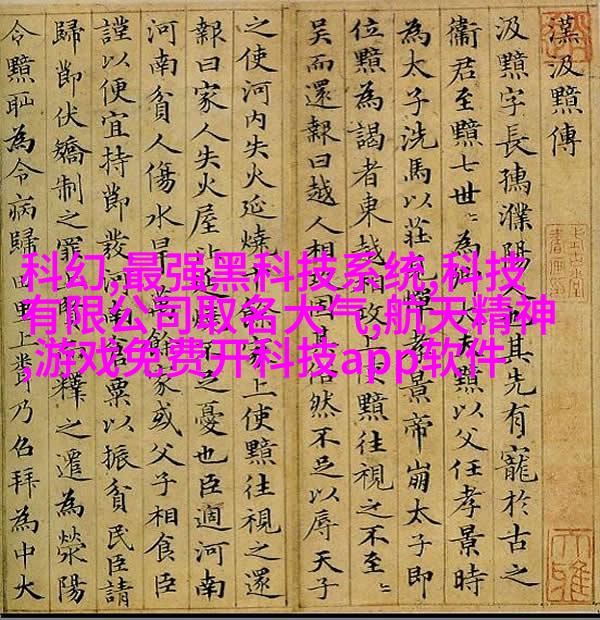 漢汲黯傳
汲黯字長孺濮陽人也其先有寵於古之
衞君至黯七世〻為卿大夫黯以父任孝景時
為太子洗馬以莊見憚孝景帝崩太子即
位黯為謁者東越相攻上使黯往視之不至〻
吳而還報曰越人相攻固其俗然不足以辱天子
之使河内失火延燒千餘家上使黯往視之還
報曰家人失火屋比延燒不足憂也臣過河南
河南貧人傷水旱萬餘家或父子相食臣
謹以便宜持節發河南倉粟以振貧民臣請
歸節伏矯制之罪上賢而釋之遷為滎陽
令黯恥為令病歸田里上聞乃召拜為中大
科幻,最强黑科技系统,科技
有限公司取名大气,航天精神
,游戏免费开科技app软件